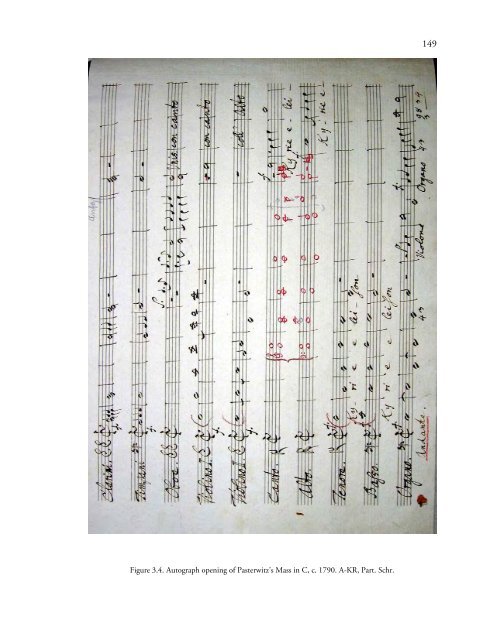 149
Clarini
Timpani
Oboe
con canto
Violino 1
con canto
Violino 2
coll' Alto
Canto
Ky - rie e - lei -
Alto
Ky - rie e -
Tenore
Ky - ri e e lei - son
Basso
Ky ri e e lei son
Organo
Violone
Organo
Andante
Figure 3.4. Autograph opening of Pasterwitz's Mass in C, c. 1790. A-KR, Part. Schr.